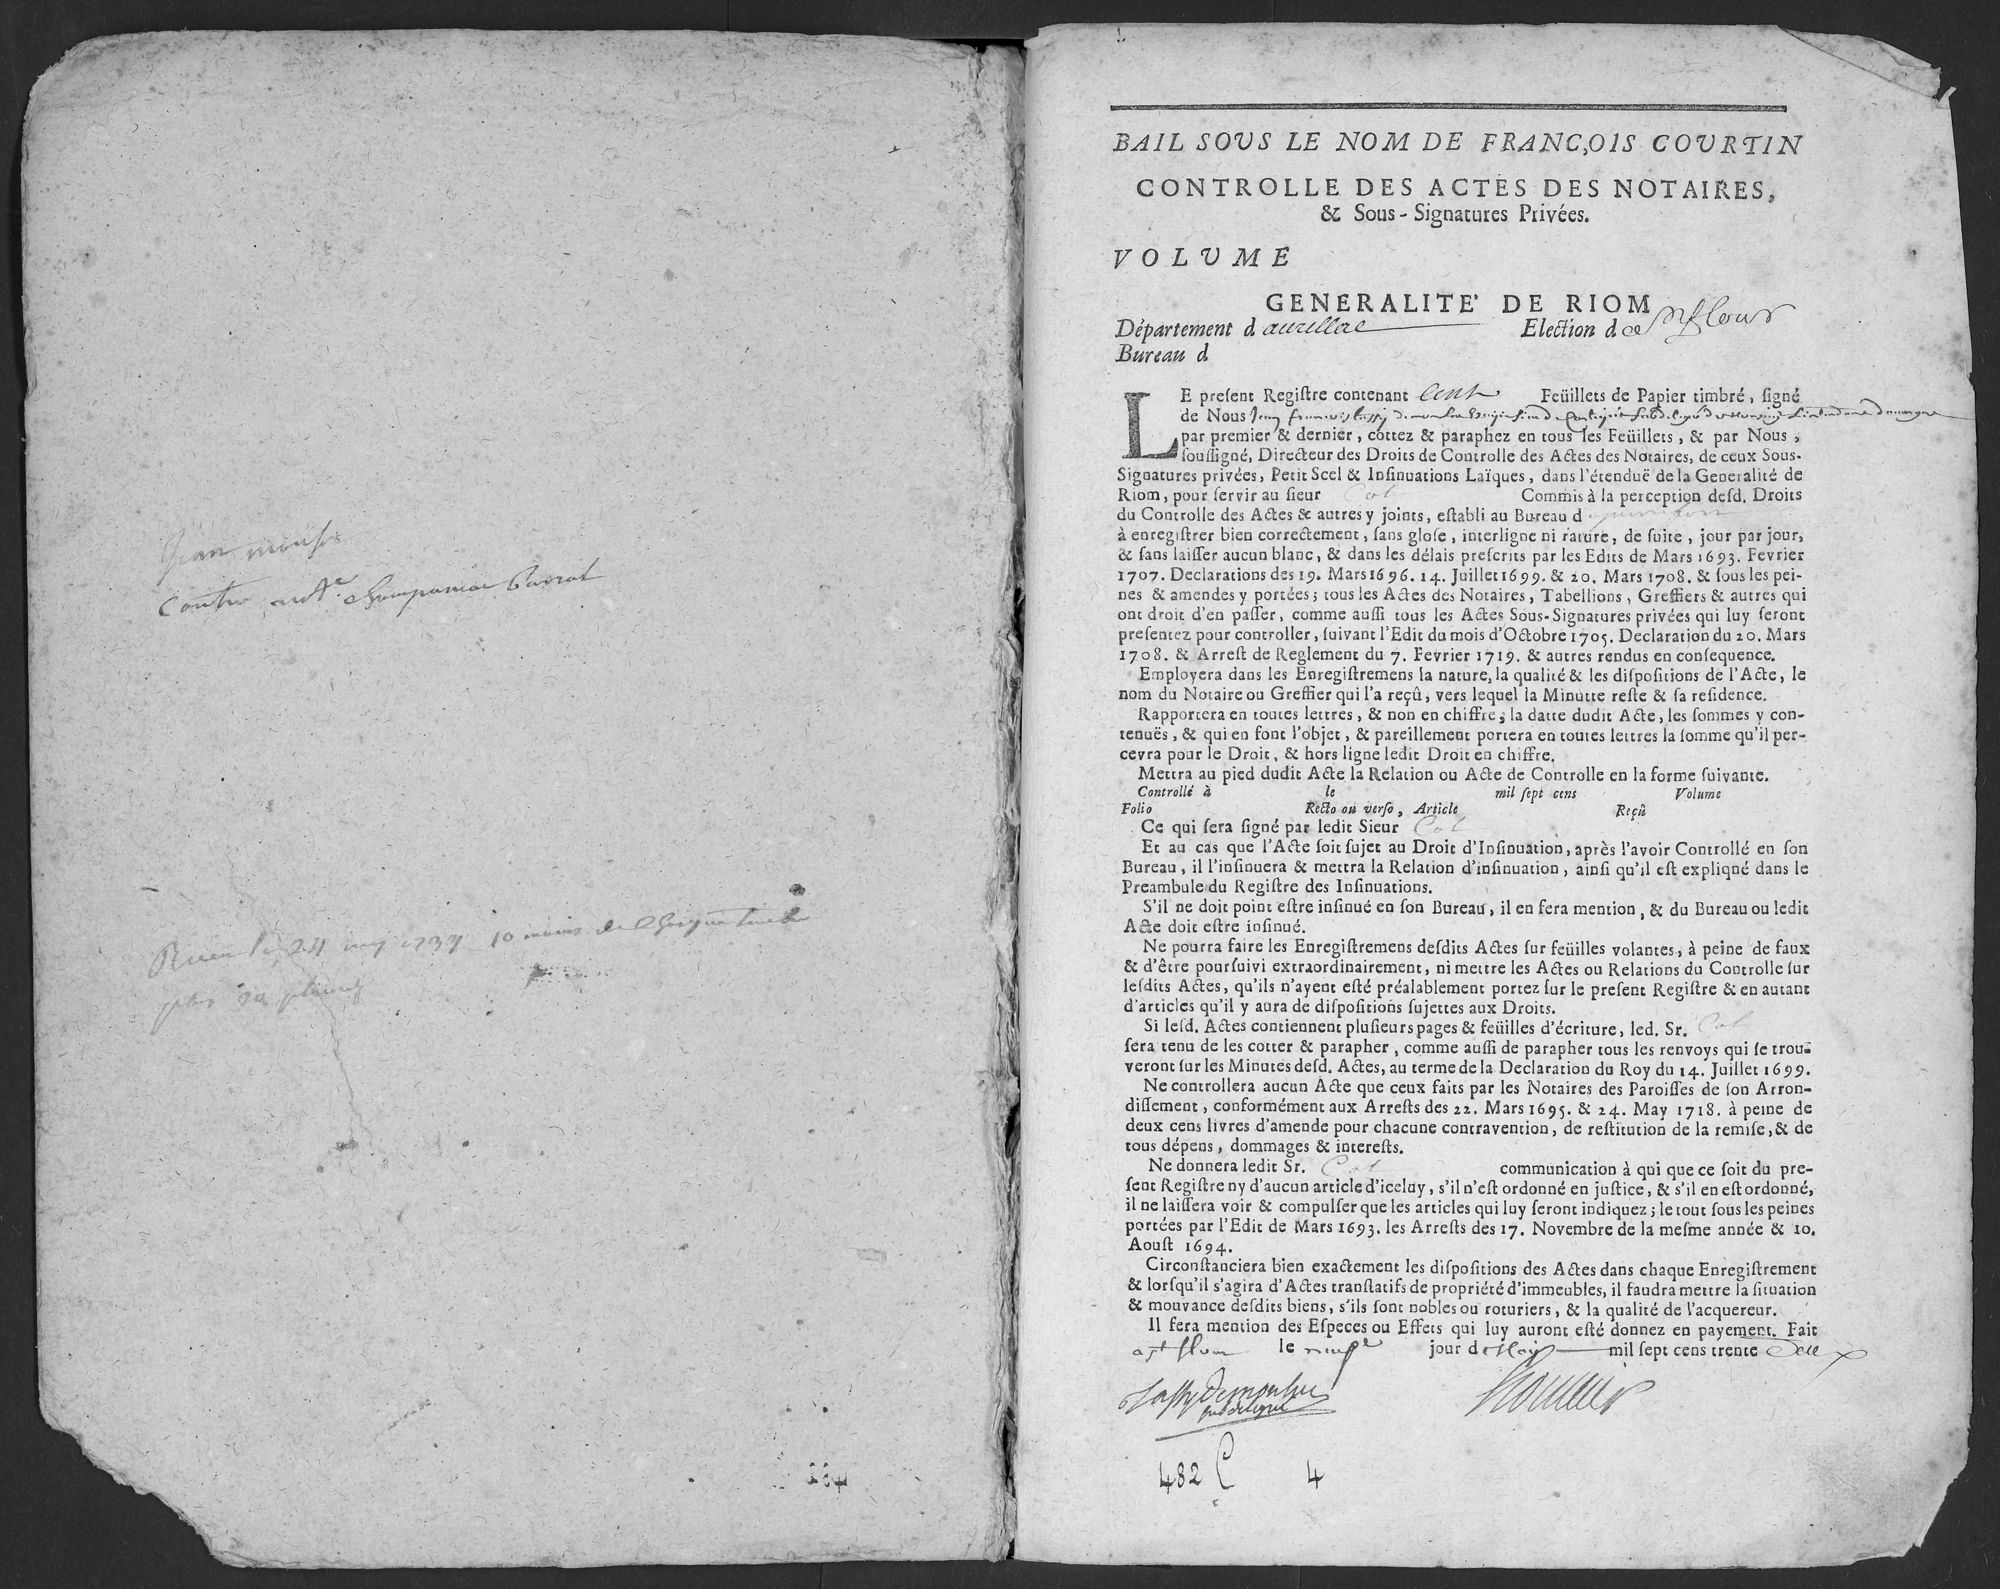 Jean
contre me champaniac
24 may 1737 10 moins de
BAIL SOUS LE NOM DE FRANC,OIS COVRTIN
CONTROLLE DES ACTES DES NOTAIRES,
& Sous-Signatures Privées.
VOLUME
GENERALITE' DE RIOM
Département d aurillac Election d e St flour
Bureau d
LE preſent Regiſtre contenant cent Feüillets de Papier timbré, ſigné
de Nous Jean francois
par premier & dernier, cottez & paraphez en tous les Feüillets, & par Nous,
ſouſſigné, Directeur des Droits de Controlle des Actes des Notaires, de ceux Sous-
Signatures privées, Petit Scel & Inſinuations Laïques, dans l'étenduë de la Generalité de
Riom, pour ſervir au ſieur Col Commis à la perception deſd. Droits
du Controlle des Actes & autres y joints, eſtabli au Bureau d
à enregiſtrer bien correctement, ſans gloſe, interligne ni rature, de ſuite, jour par jour,
& ſans laiſſer aucun blanc, & dans les délais preſcrits par les Edits de Mars 1693. Fevrier
1707. Declarations des 19. Mars 1696. 14. Juillet 1699. & 20. Mars 1708. & ſous les pei-
nes & amendes y portées; tous les Actes des Notaires, Tabellions, Greffiers & autres qui
ont droit d'en paſſer, comme auſſi tous les Actes Sous-Signatures privées qui luy ſeront
preſentez pour controller, ſuivant l'Edit du mois d'Octobre 1705. Declaration du 20. Mars
1708. & Arreſt de Reglement du 7. Fevrier 1719. & autres rendus en conſequence.
Employera dans les Enregiſtremens la nature, la qualité & les diſpoſitions de l'Acte, le
nom du Notaire ou Greffier qui l'a reçû, vers lequel la Minutte reſte & ſa reſidence.
Rapportera en toutes lettres, & non en chiffre, la datte dudit Acte, les ſommes y con-
tenuës, & qui en font l'objet, & pareillement portera en toutes lettres la ſomme qu'il per-
cevra pour le Droit, & hors ligne ledit Droit en chiffre.
Mettra au pied dudit Acte la Relation ou Acte de Controlle en la forme ſuivante.
Controllé à le mil ſept cens Volume
Folio Recto ou verſo, Article Reçû
Ce qui ſera ſigné par ledit Sieur Col
Et au cas que l'Acte ſoit ſujet au Droit d'Inſinuation, après l'avoir Controllé en ſon
Bureau, il l'inſinuera & mettra la Relation d'inſinuation, ainſi qu'il eſt expliqué dans le
Preambule du Regiſtre des Inſinuations.
S'il ne doit point eſtre inſinué en ſon Bureau, il en fera mention, & du Bureau ou ledit
Acte doit eſtre inſinué.
Ne pourra faire les Enregiſtremens deſdits Actes ſur feüilles volantes, à peine de faux
& d'être pourſuivi extraordinairement, ni mettre les Actes ou Relations du Controlle ſur
leſdits Actes, qu'ils n'ayent eſté préalablement portez ſur le preſent Regiſtre & en autant
d'articles qu'il y aura de diſpoſitions ſujettes aux Droits.
Si leſd. Actes contiennent pluſieurs pages & feüilles d'écriture, led. Sr. Col
ſera tenu de les cotter & parapher, comme auſſi de parapher tous les renvoys qui ſe trou-
veront ſur les Minutes deſd. Actes, au terme de la Declaration du Roy du 14. Juillet 1699.
Ne controllera aucun Acte que ceux faits par les Notaires des Paroiſſes de ſon Arron-
diſſement, conformément aux Arreſts des 22. Mars 1695. & 24. May 1718. à peine de
deux cens livres d'amende pour chacune contravention, de reſtitution de la remiſe, & de
tous dépens, dommages & intereſts.
Ne donnera ledit Sr. Col communication à qui que ce ſoit du pre-
ſent Regiſtre ny d'aucun article d'iceluy, s'il n'eſt ordonné en juſtice, & s'il en eſt ordonné,
il ne laiſſera voir & compulſer que les articles qui luy ſeront indiquez; le tout ſous les peines
portées par l'Edit de Mars 1693. les Arreſts des 17. Novembre de la meſme année & 10.
Aouſt 1694.
Circonſtanciera bien exactement les diſpoſitions des Actes dans chaque Enregiſtrement
& lorſqu'il s'agira d'Actes tranſlatifs de propriété d'immeubles, il faudra mettre la ſituation
& mouvance deſdits biens, s'ils ſont nobles ou roturiers, & la qualité de l'acquereur.
Il fera mention des Eſpeces ou Effets qui luy auront eſté donnez en payement. Fait
a St flour le jour d mil ſept cens trente deux
482 C 4